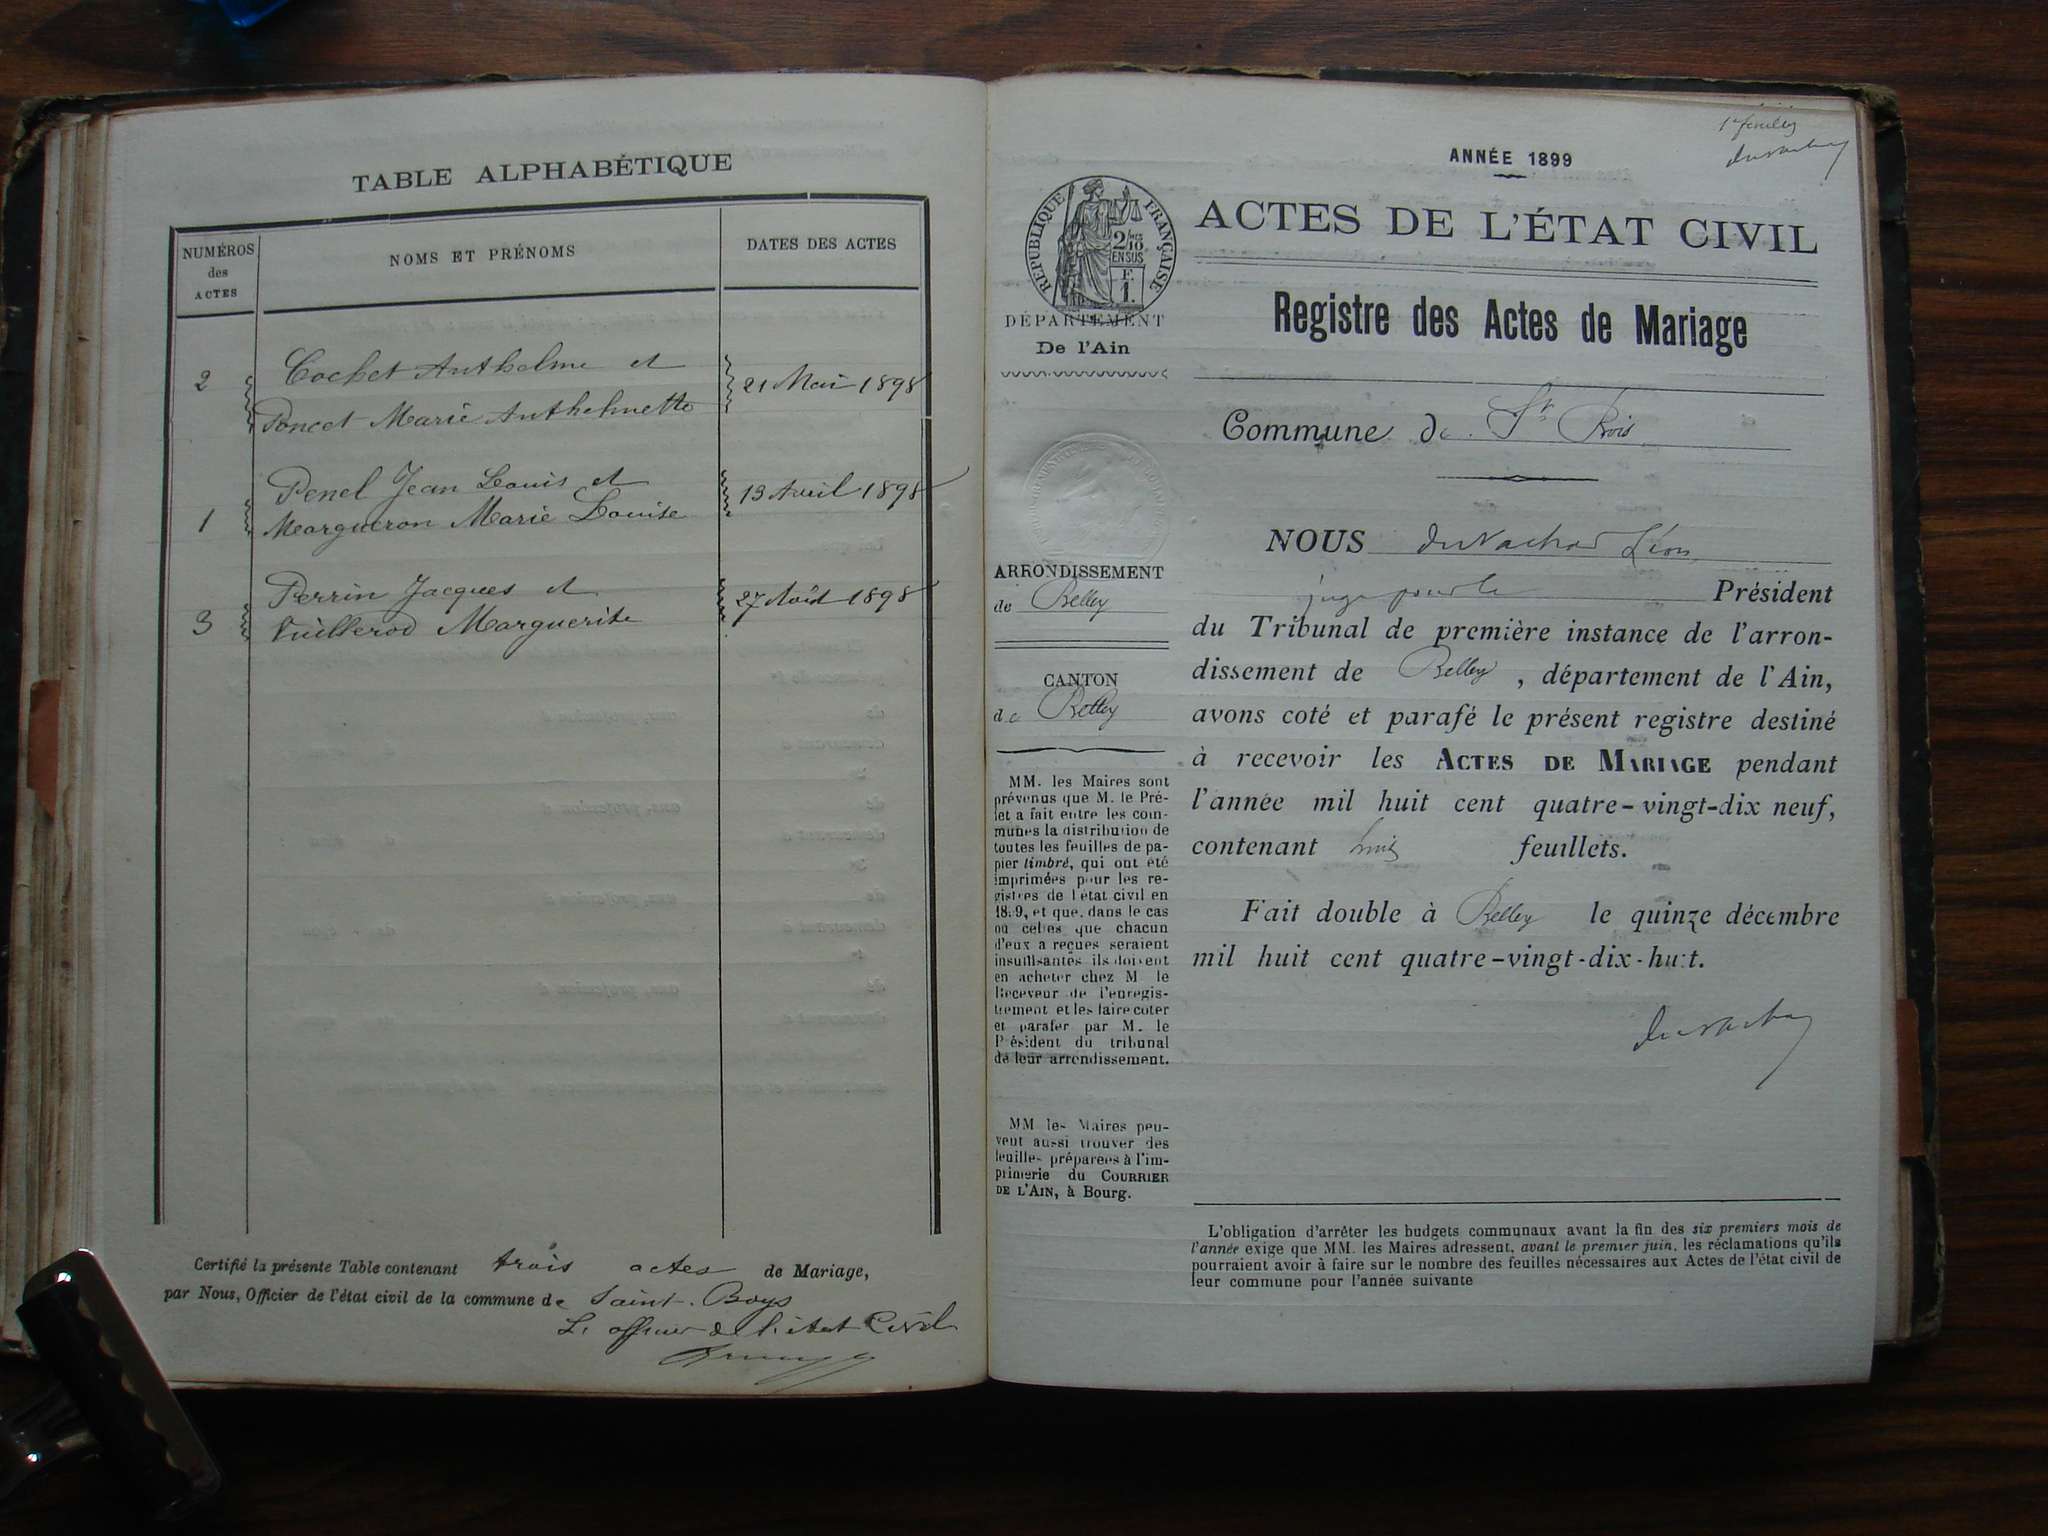 TABLE ALPHABÉTIQUE
NUMÉROS
des
ACTES
NOMS ET PRÉNOMS
DATES DES ACTES
2
Cochet Anthelme et
Poncet Marie Anthelmette
21 Mai 1898
1
Penel Jean Louis et
Margueron Marie Louise
13 Avril 1898
3
Perrin Jacques et
Vuillerod Marguerite
27 Août 1898
Certifié la présente Table contenant trois actes de Mariage,
par Nous, Officier de l'état civil de la commune de Saint-Boys
L'officier de l'état Civil
1er feuillet
ANNÉE 1899
RÉPUBLIQUE FRANÇAISE
2/10
EN SUS
F.
1.
ACTES DE L'ÉTAT CIVIL
DÉPARTEMENT
De l'Ain
Registre des Actes de Mariage
Commune de St Bois
ARRONDISSEMENT
de Belley
CANTON
de Belley
MM. les Maires sont
prévenus que M. le Pré-
fet a fait entre les com-
munes la distribution de
toutes les feuilles de pa-
pier timbré, qui ont été
imprimées pour les re-
gistres de l'état civil en
1899, et que, dans le cas
où celles que chacun
d'eux a reçues seraient
insuffisantes ils doivent
en acheter chez M le
Receveur de l'enregis-
trement et les faire coter
et parafer par M. le
Président du tribunal
de leur arrondissement.
MM les Maires peu-
vent aussi trouver des
feuilles préparées à l'im-
primerie du COURRIER
DE L'AIN, à Bourg.
NOUS Léon
juge pour le Président
du Tribunal de première instance de l'arron-
dissement de Belley, département de l'Ain,
avons coté et parafé le présent registre destiné
à recevoir les ACTES DE MARIAGE pendant
l'année mil huit cent quatre-vingt-dix neuf,
contenant huit feuillets.
Fait double à Belley le quinze décembre
mil huit cent quatre-vingt-dix-huit.
L'obligation d'arrêter les budgets communaux avant la fin des six premiers mois de
l'année exige que MM. les Maires adressent, avant le premier juin, les réclamations qu'ils
pourraient avoir à faire sur le nombre des feuilles nécessaires aux Actes de l'état civil de
leur commune pour l'année suivante